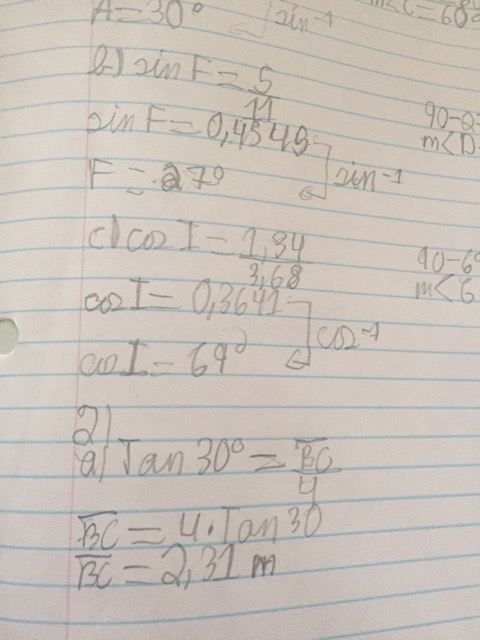 A = 30° sin-1 m<C = 60°
b) sin F = 5/11
sin F = 0,4545 90-2
F = 27° sin-1 m<D
c) cos I = 1,34/3,68
cos I = 0,3641 90-6
cos I = 69° cos-1 m<G
2)
a) Tan 30° = BC/4
BC = 4·Tan 30
BC = 2,31 m